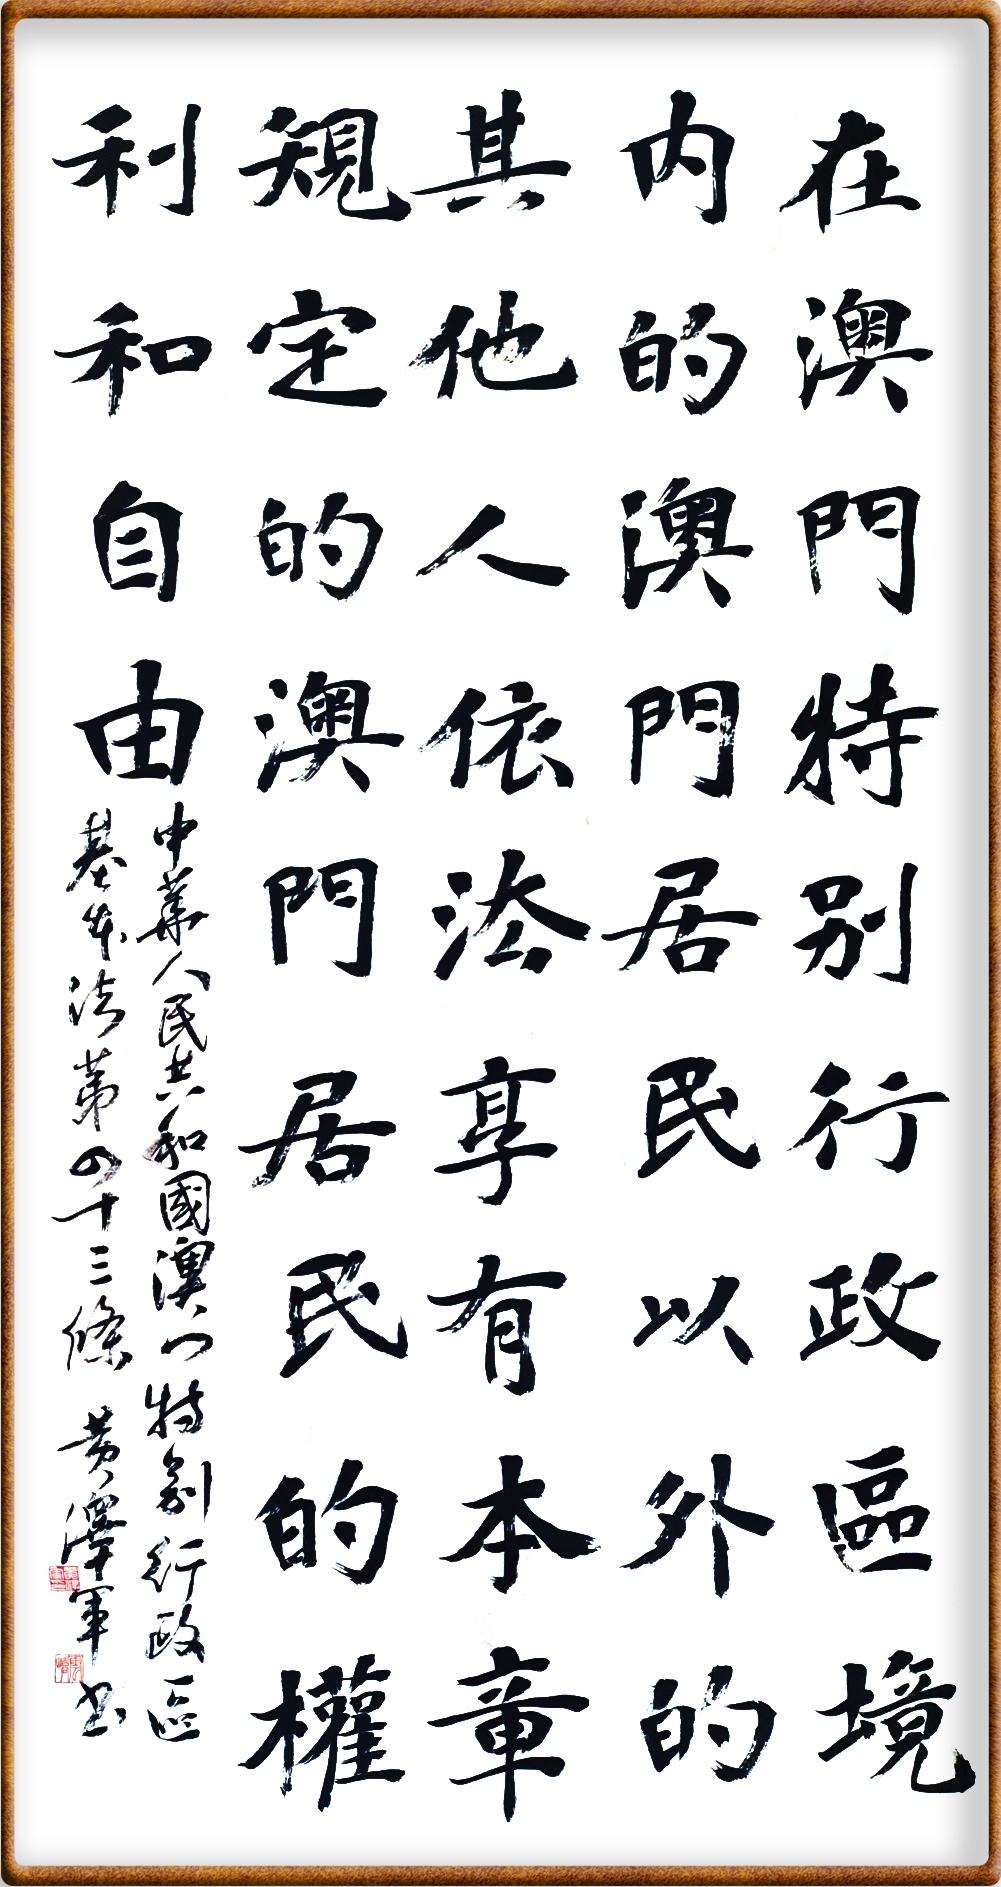 在澳門特别行政區境
内的澳門居民以外的
其他人依法享有本章
規定的澳門居民的權
利和自由
中華人民共和國澳门特别行政區
基本法第四十三條 黄澤軍书